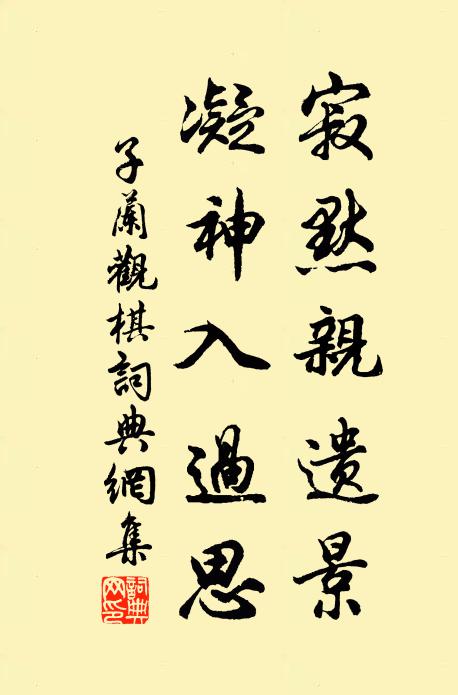 寂默親遺景
凝神入過思
子蘭觀棋詞典網集
詞典
网印